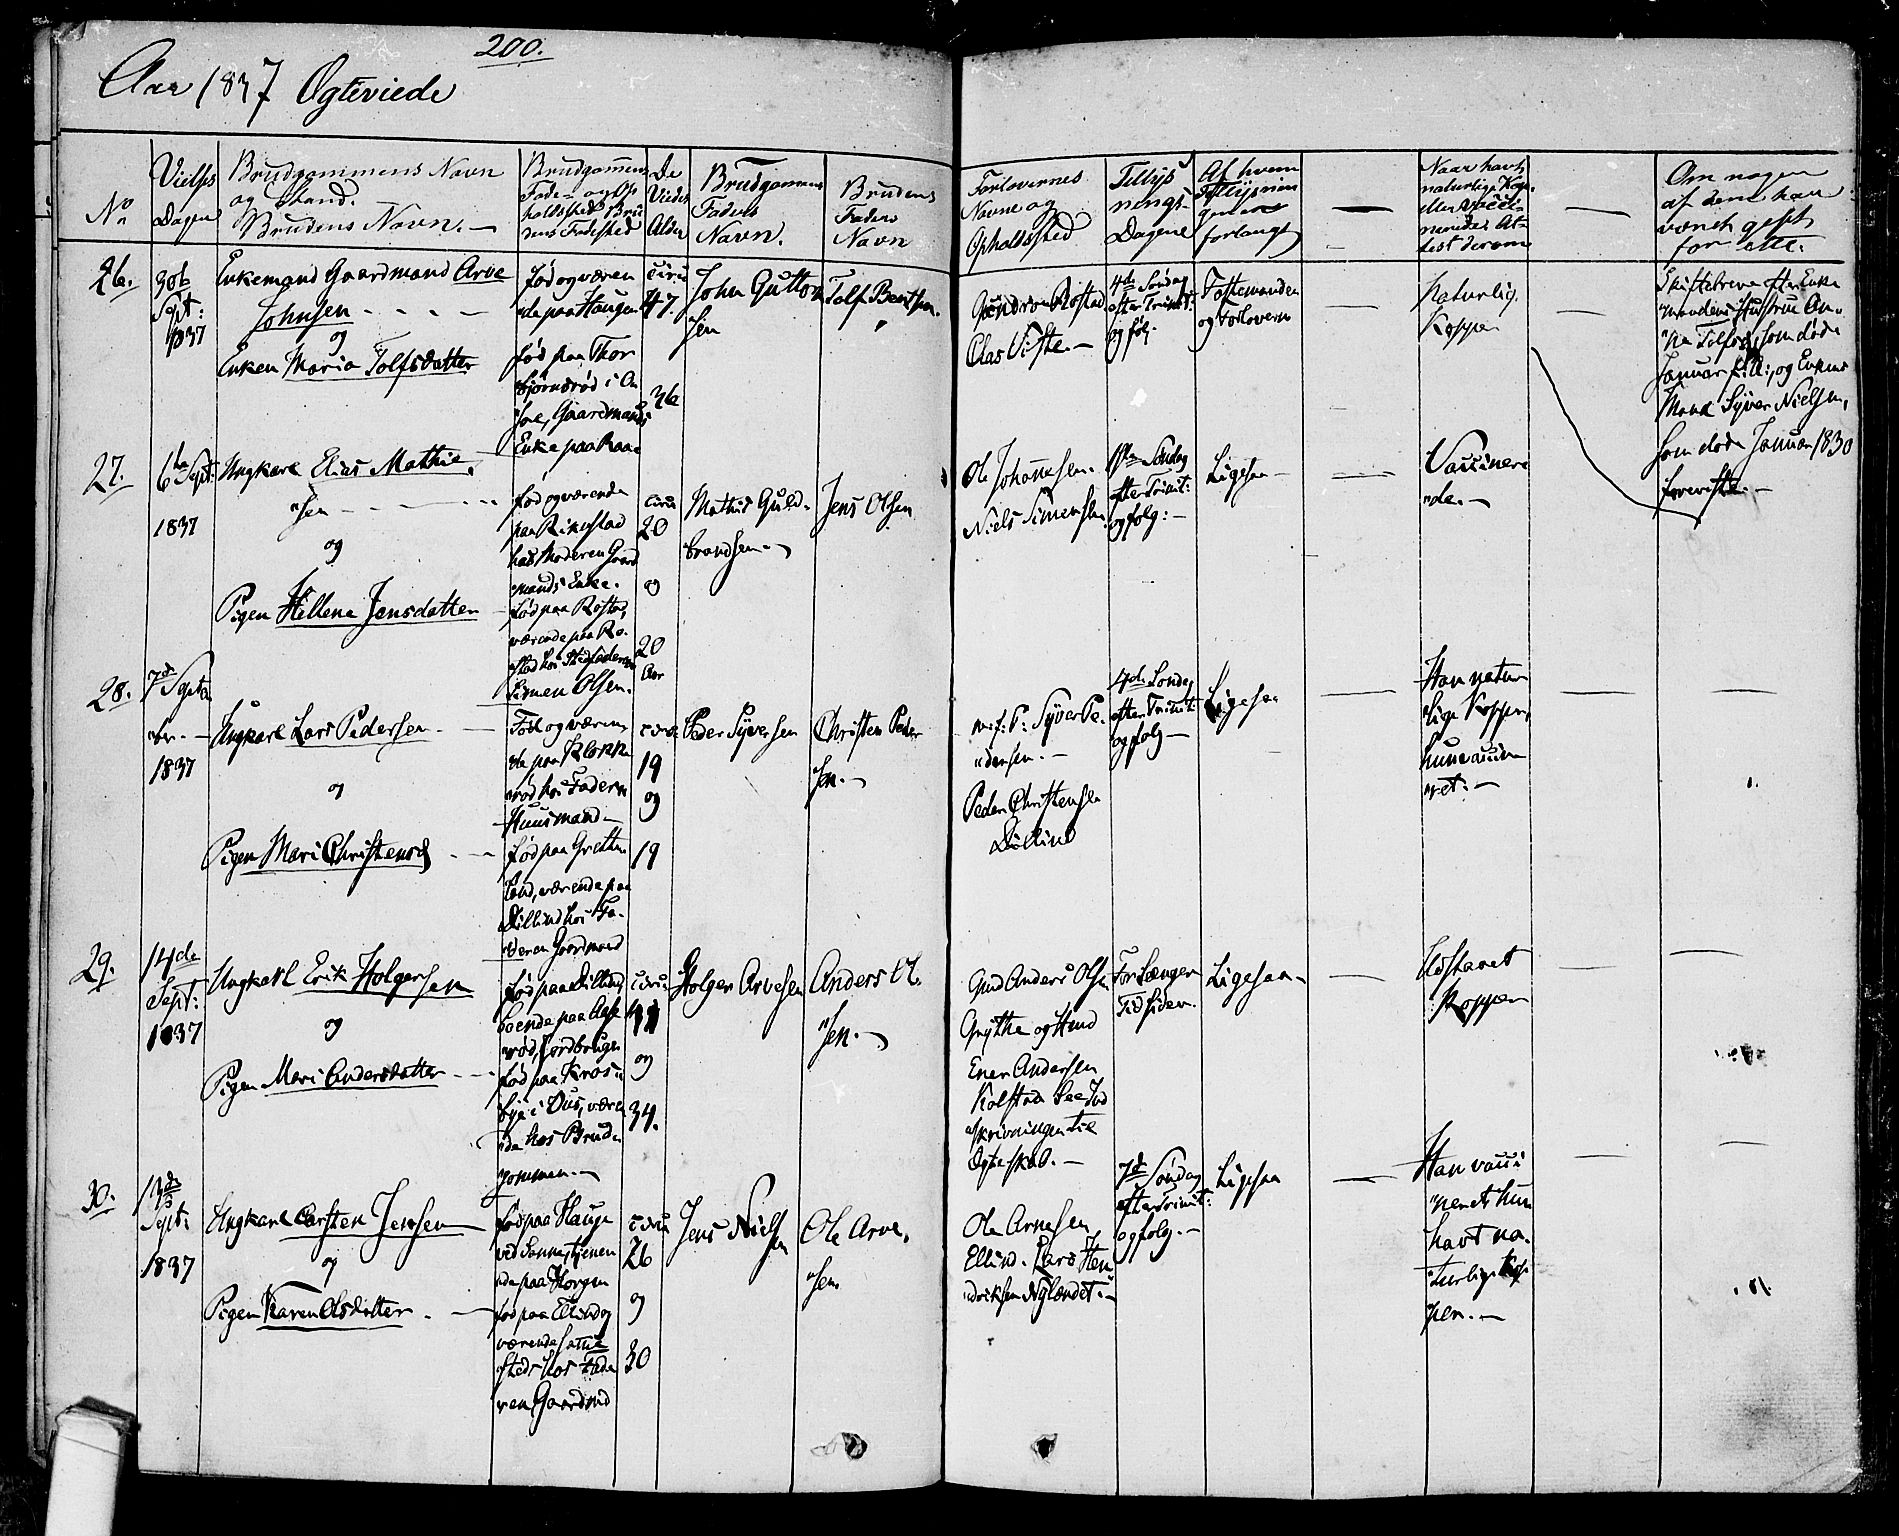 200.
Aar 1837 Ogteviede
No
Vielses
Dagen
Brudgommens Navn
og Stand.
Brudens Navn. —
Brudgommens
Føde- og Op
holdssted Bru
dens Fødested
De
Viedes
Alder
Brudgommens
Faders
Navn.
Brudens
Faders
Navn
Forlovernes
Navne og
Opholdssted
Tillys
nings-
Dagene
Af hvem
forlangt
Naar havt
naturlige Kop.
eller vacci-
nerede, At-
test derom
Om nogen
af dem har
været gift
før etc.
26.
Sept:
1837
Enkemand Gaardmand Arve
Johnsen
og
Enken Maria Tolfsdatter
Født og væren
de paa Haugen
født paa Thor
bjørnsrød i
Gaardmands
Enke paa
circa
47.
36
John Gutton
sen
Tolf Bentsen.
Røstad
Olas
4de Søndag
efter Trinit:
og følg.
Forlovern
Naturlig
Kopper
Skiftebreve efter Enke
mandens Hustrue An-
na Tolfsd, som døde
Januar og Enkens
Mand Syver Nielsen,
som døde Januar 1830
foreviste. —
27.
6te Sept:
1837
Ungkarl Elias Mathie
sen
og
Pigen Hellena Jensdatter
født og værende
paa Rikestad
hos Moderen Gaard
mands Enke.
født paa Røstad,
værende paa Rø-
stad hos Stedfaderen
Simen Olsen.
circa
20
og
20
Aar
Mathis Guld-
brandsen
Jens Olsen
Ole Johannesen.
Niels Simensen
Søndag
efter Trinit:
og følg: —
Ligesaa
Vaccinere
de. —
28.
7de Septe
br. —
1837
Ungkarl Lars Pedersen
og
Pigen Mari Christensd
Født og væren
de paa Klopp
rød hos Faderen
Huusmand —
født paa Grette
lund, værende paa
Dillund hos Fa-
deren Gaardmand
circa
19
og
19
Peder Syversen
Christen Peder
sen. —
Syver Pe-
dersen. —
Peder Christensen
Dillund
4de Søndag
efter Trinit:
og følg —
Ligesaa
Han natur
lige Kopper,
hun vaccine
ret: —
29.
14de
Sept:
1837
Ungkarl Erik Holgersen
og
Pigen Mari Andersdatter
født paa Dillund,
boende paa Aase
rød, Jordbruger
født paa Kros
bye i Aas, væren
de hos Brud
gommen. —
circa
og
34.
Holger Arvesen
Anders Ol
sen. —
Anders Olsen
Grythe og
Ener Andersen
Kolstad See Ind
skrivningen til
Ogteskab. —
For længer
Tid siden.
Ligesaa
Kopper
30.
Sept:
1837
Ungkarl Carsten Jensen
og
Pigen Karen Olsdatter
født paa Hauge
ved Sonne, tjenen
de paa Horgen
født paa Ellind og
værende samme
steds hos Fade
ren Gaardmd
circa
26
og
30
Jens Niel
sen
Ole Arve
sen
Ole Arnesen
Ellind. Lars Hen
driksen Nylændet: —
7de Søndag
efter Trinit:
og følg. —
Ligesaa
Han vacci
neret hun
havt na-
turlige Kop
per. —